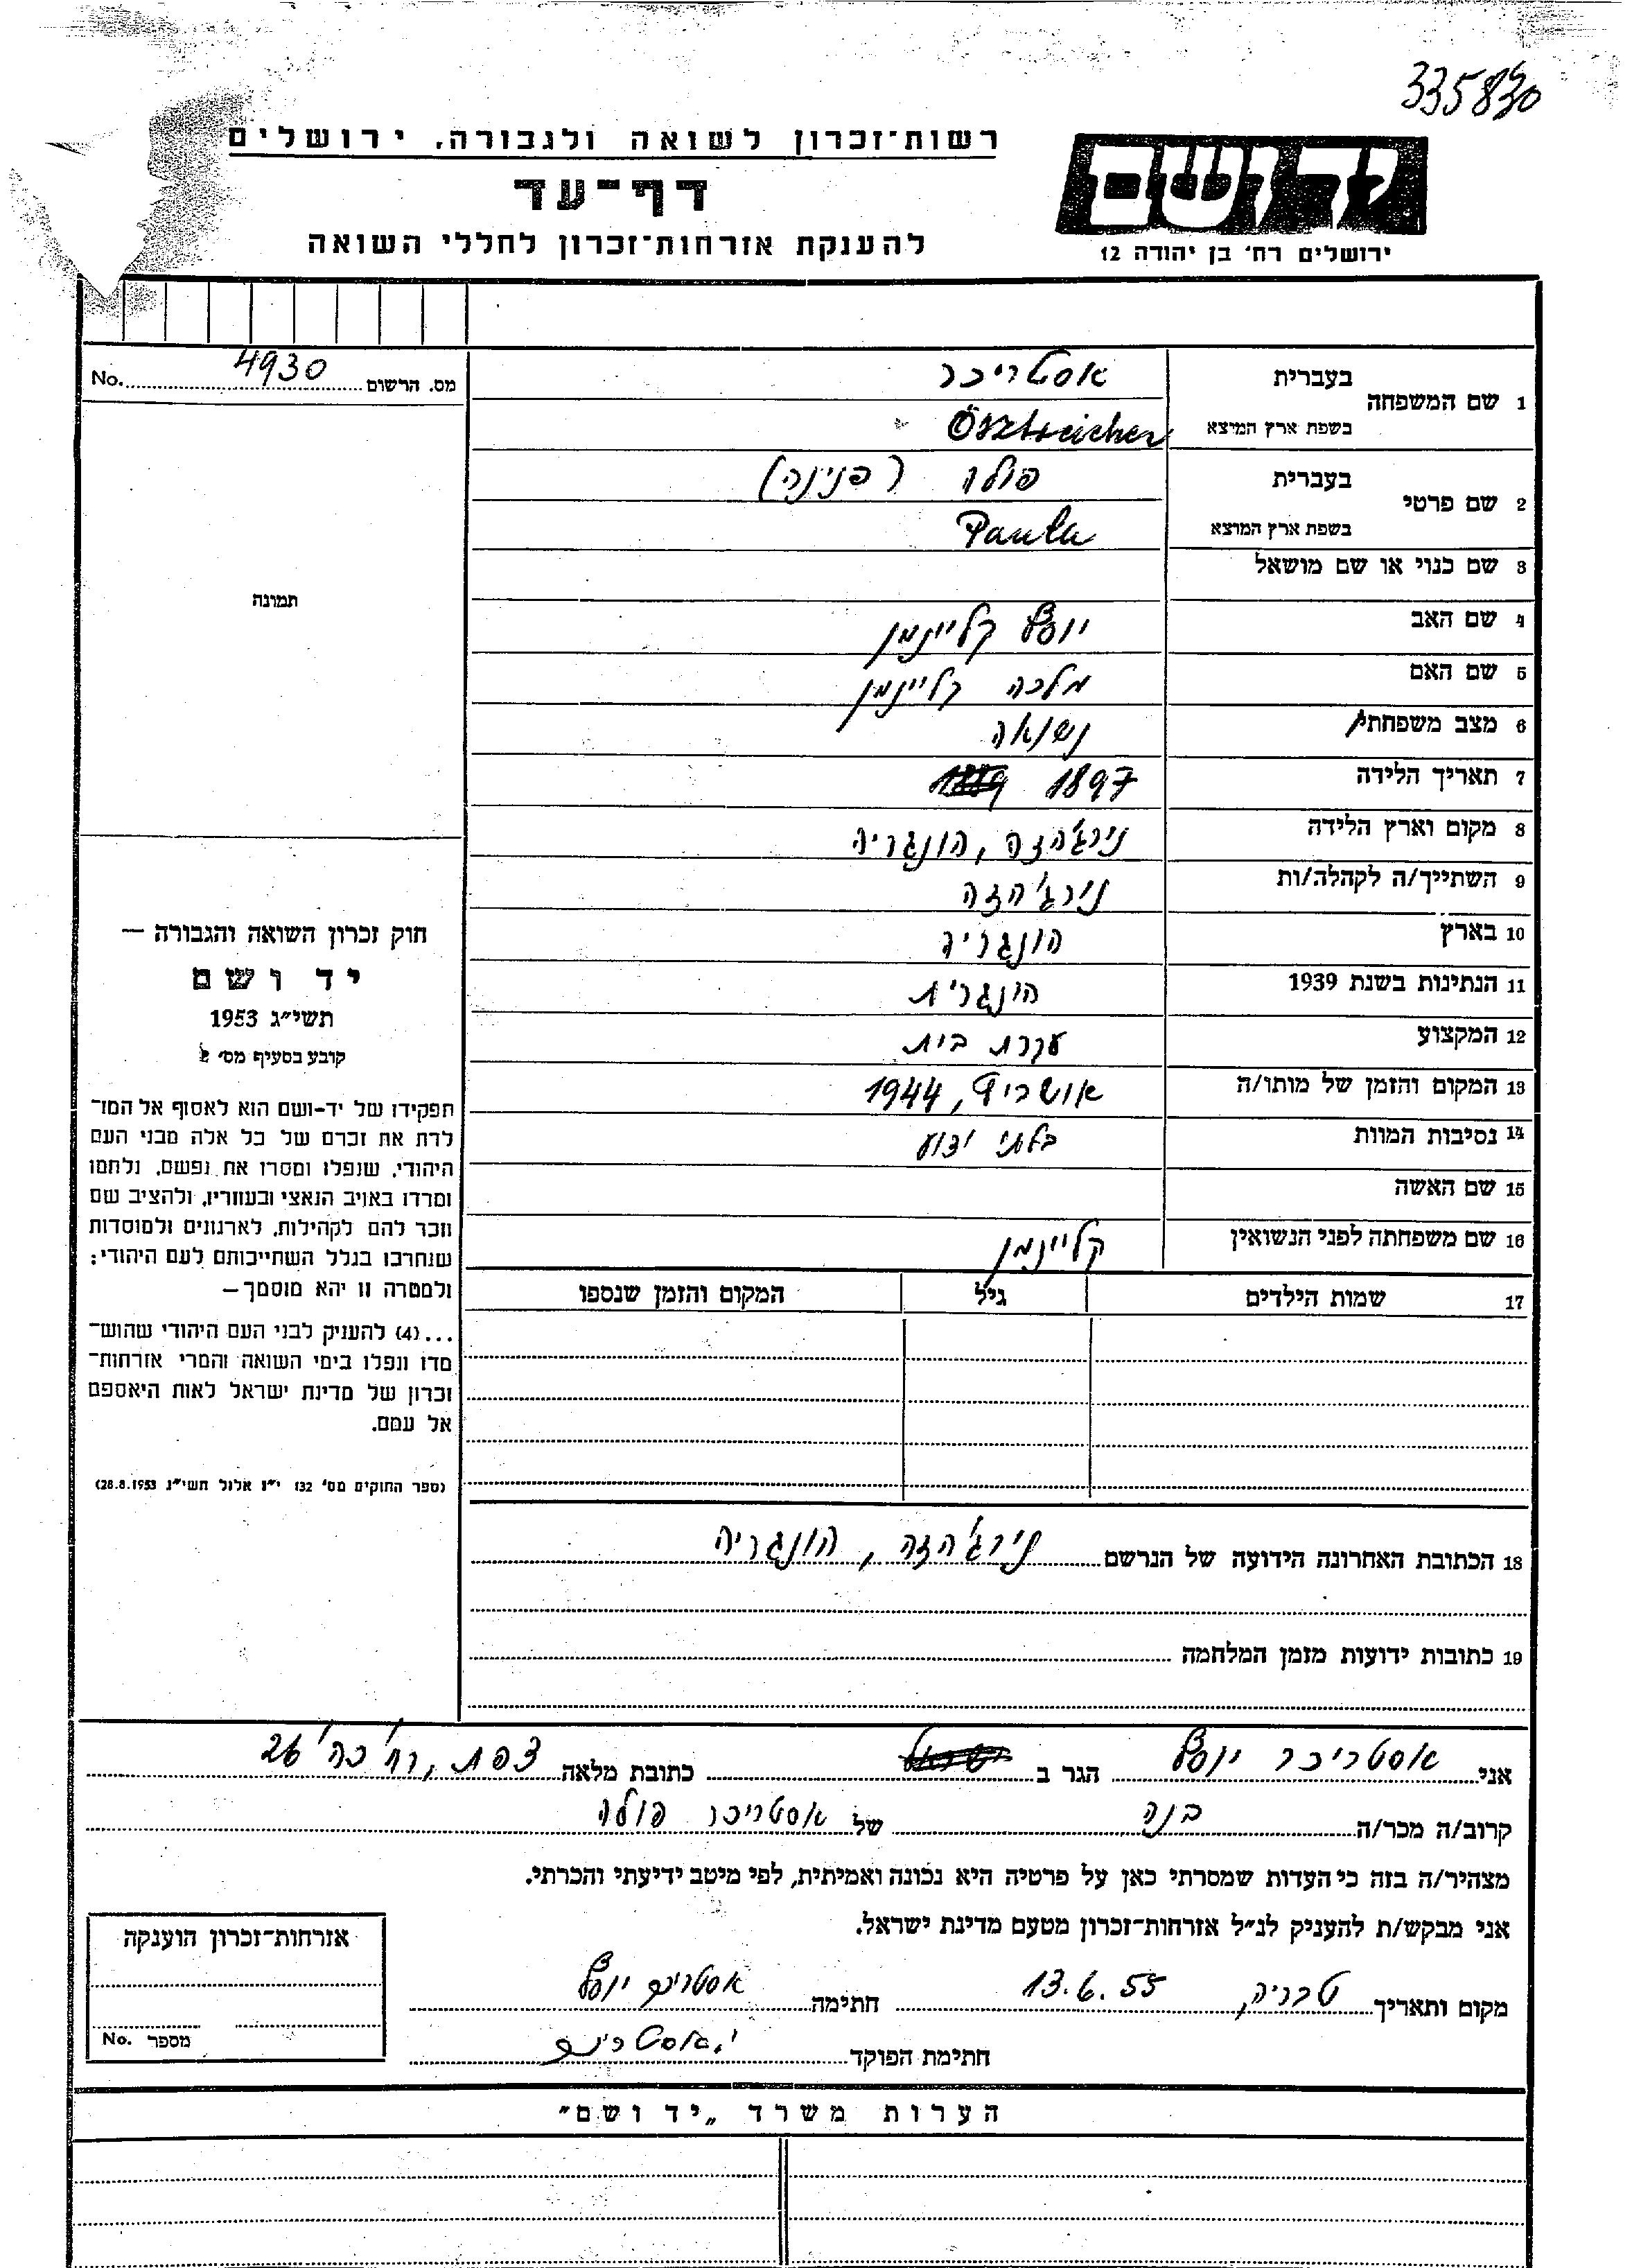 335830
רשות־זכרון לשואה ולגבורה, ירושלים
דף־עד
להענקת אזרחות־זכרון לחללי השואה
יד ושם
ירושלים רח' בן יהודה 12
מס. הרשום 4930 No.
תמונה
1 שם המשפחה
בעברית אסטרייכר
בשפת ארץ המוצא Ösztreicher
2 שם פרטי
בעברית פולה (פנינה)
בשפת ארץ המוצא Paula
3 שם כנוי או שם מושאל
4 שם האב יוסף קליינמן
5 שם האם מלכה קליינמן
6 מצב משפחתי נשואה
7 תאריך הלידה 1897
8 מקום וארץ הלידה נירג'הזה, הונגריה
9 השתייך/ה לקהלה/ות נירג'הזה
10 בארץ הונגריה
11 הנתינות בשנת 1939 הונגרית
12 המקצוע עקרת בית
13 המקום והזמן של מותו/ה אושויץ, 1944
14 נסיבות המוות בלתי ידוע
15 שם האשה
16 שם משפחתה לפני הנשואין קליינמן
17 שמות הילדים גיל המקום והזמן שנספו
חוק זכרון השואה והגבורה —
יד ושם
תשי״ג 1953
קובע בסעיף מס' 2
תפקידו של יד-ושם הוא לאסוף אל המו־
לדת את זכרם של כל אלה מבני העם
היהודי, שנפלו ומסרו את נפשם, נלחמו
ומרדו באויב הנאצי ובעוזריו, ולהציב שם
וזכר להם לקהילות, לארגונים ולמוסדות
שנחרבו בגלל השתייכותם לעם היהודי;
ולמטרה זו יהא מוסמך—
...(4) להעניק לבני העם היהודי שהוש־
מדו ונפלו בימי השואה והמרי אזרחות־
זכרון של מדינת ישראל לאות היאספם
אל עמם.
(ספר החוקים מס' 132 י״ז אלול תשי״ג 28.8.1953)
18 הכתובת האחרונה הידועה של הנרשם נירג'הזה, הונגריה
19 כתובות ידועות מזמן המלחמה
אני אסטרייכר יוסף הגר ב כתובת מלאה צפת, רח' כה' 26
קרוב/ה מכר/ה בנה של אסטרייכר פולה
מצהיר/ה בזה כי העדות שמסרתי כאן על פרטיה היא נכונה ואמיתית, לפי מיטב ידיעתי והכרתי.
אני מבקש/ת להעניק לנ״ל אזרחות־זכרון מטעם מדינת ישראל.
מקום ותאריך טבריה, 13.6.55 חתימה אסטרייכר יוסף
חתימת הפוקד
אזרחות־זכרון הוענקה
מספר No.
הערות משרד „יד ושם"